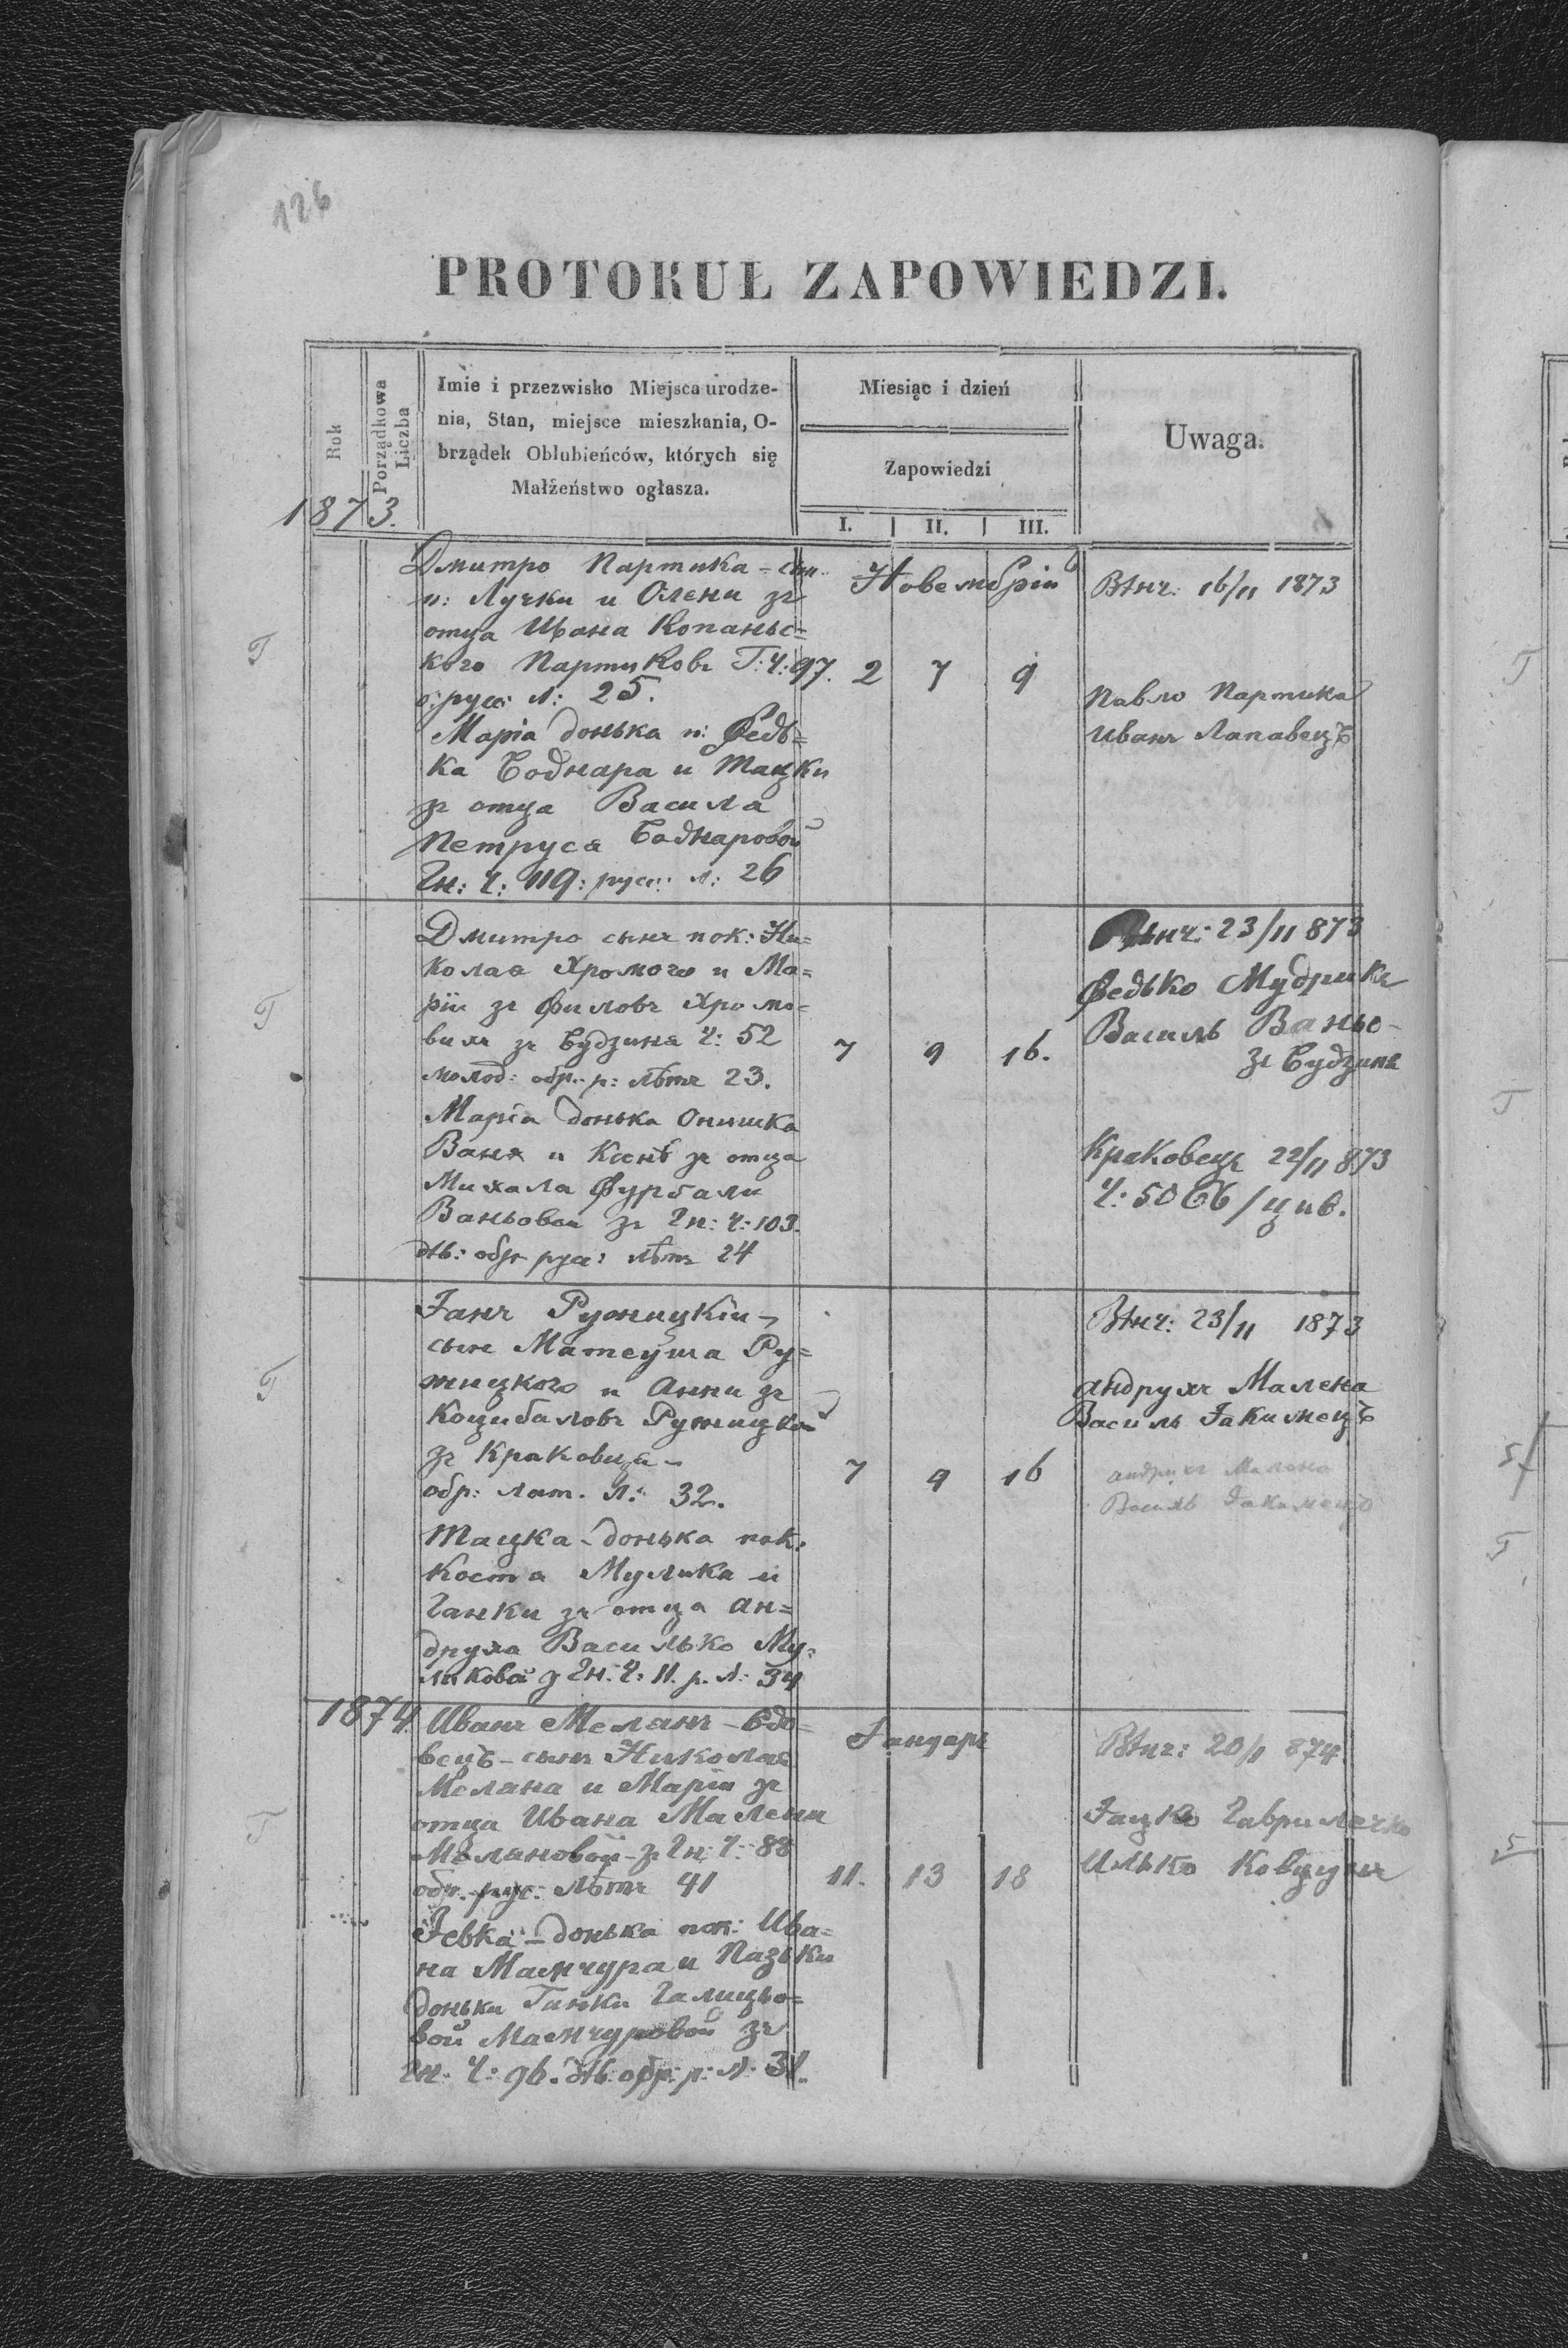 126
PROTOKUŁ ZAPOWIEDZI.
Rok
Porządkowa Liczba
Imie i przezwisko Miejsca urodze-
nia, Stan, miejsce mieszkania, O-
brządek Oblubieńców, których się
Małżeństwo ogłasza.
Miesiąc i dzień
Zapowiedzi
I. II. III.
Uwaga.
1873.
Дмитро Партика - сын
п: Луцки и Олени зъ
отца Ивана Копаньс=
кого Партиковъ Г: Ч: 97.
о: рус: л: 25.
Марія донька п: Федь=
ка Боднара и Мацки
зъ отца Васила
Петруса Боднаровой
Гн: Ч: 119: рус: л: 26
Новемврій
2 7 9
Вѣнч: 16/11 1873
Павло Партика
Иванъ Лапавецъ
Г
Дмитро сынъ пок: Ни=
колая Хромого и Ма=
ріи зъ Филовъ Хромо=
выхъ зъ Будзиня Ч: 52
молод: обр. р: лѣтъ 23.
Марія донька Онишка
Ваня и Ксенѣ зъ отца
Михала Фургали
Ваньовой зъ Гн: Ч: 103.
дѣв: обр рус: лѣтъ 24
7 9 16.
Вѣнч: 23/11 873
Федько Мудрикъ
Василь Ваньо-
зъ Будзиня
Краковецъ 22/11 873
Ч: 5066/цив.
Г
Іанъ Ружицкій -
сынъ Матеуша Ру=
жицкого и Анни зъ
Коцибаловъ Ружицкой
зъ Краковця -
обр: лат. Л: 32.
Мацка - донька пок:
Коста Мулика и
Ганки зъ отца Ан=
друха Василько Му=
ликовой з Гн: Ч: 11. р. Л: 34
7 9 16
Вѣнч: 23/11 1873
Андрухъ Малена
Василь Іакимецъ
Андрухъ Малена
Василь Іакимецъ
Г
1874.
Иванъ Меланъ - вдо=
вецъ - сынъ Николая
Мелана и Маріи зъ
отца Ивана Малени
Мелановой - з Гн: Ч: 88
обр. рус: лѣтъ 41
Іевка - донька пок: Ива=
на Мамчура и Пазьки
доньки Гинки Галицьо=
вой Мамчуровой зъ
Гн. Ч: 96. дѣв: обр: р: Л: 31.
Іануаръ
11. 13 18
Вѣнч: 20/1 874
Іацко Гаврилечко
Илько Ковцунъ
Г